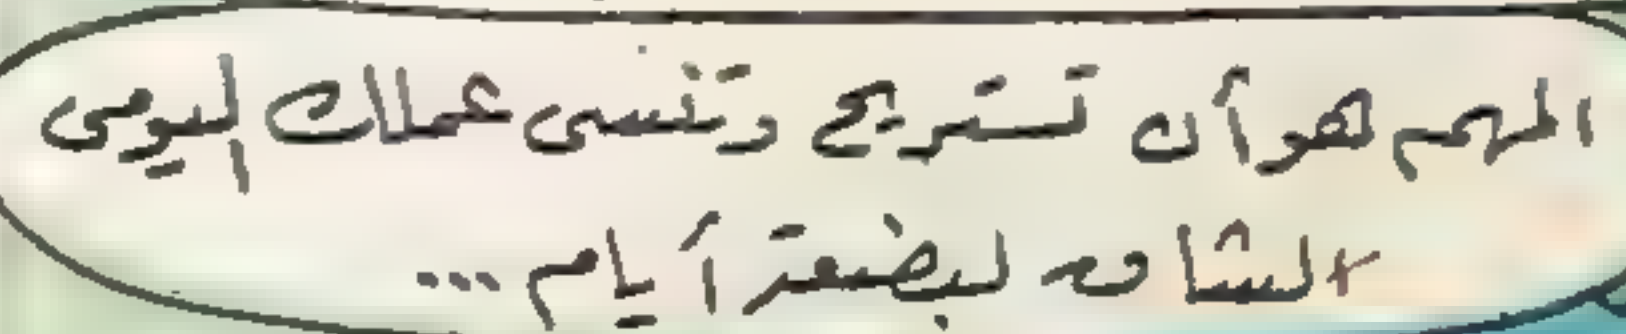 المهم هو أن تستريح وتنسى عملك اليومى
الشاق لبضعة أيام...